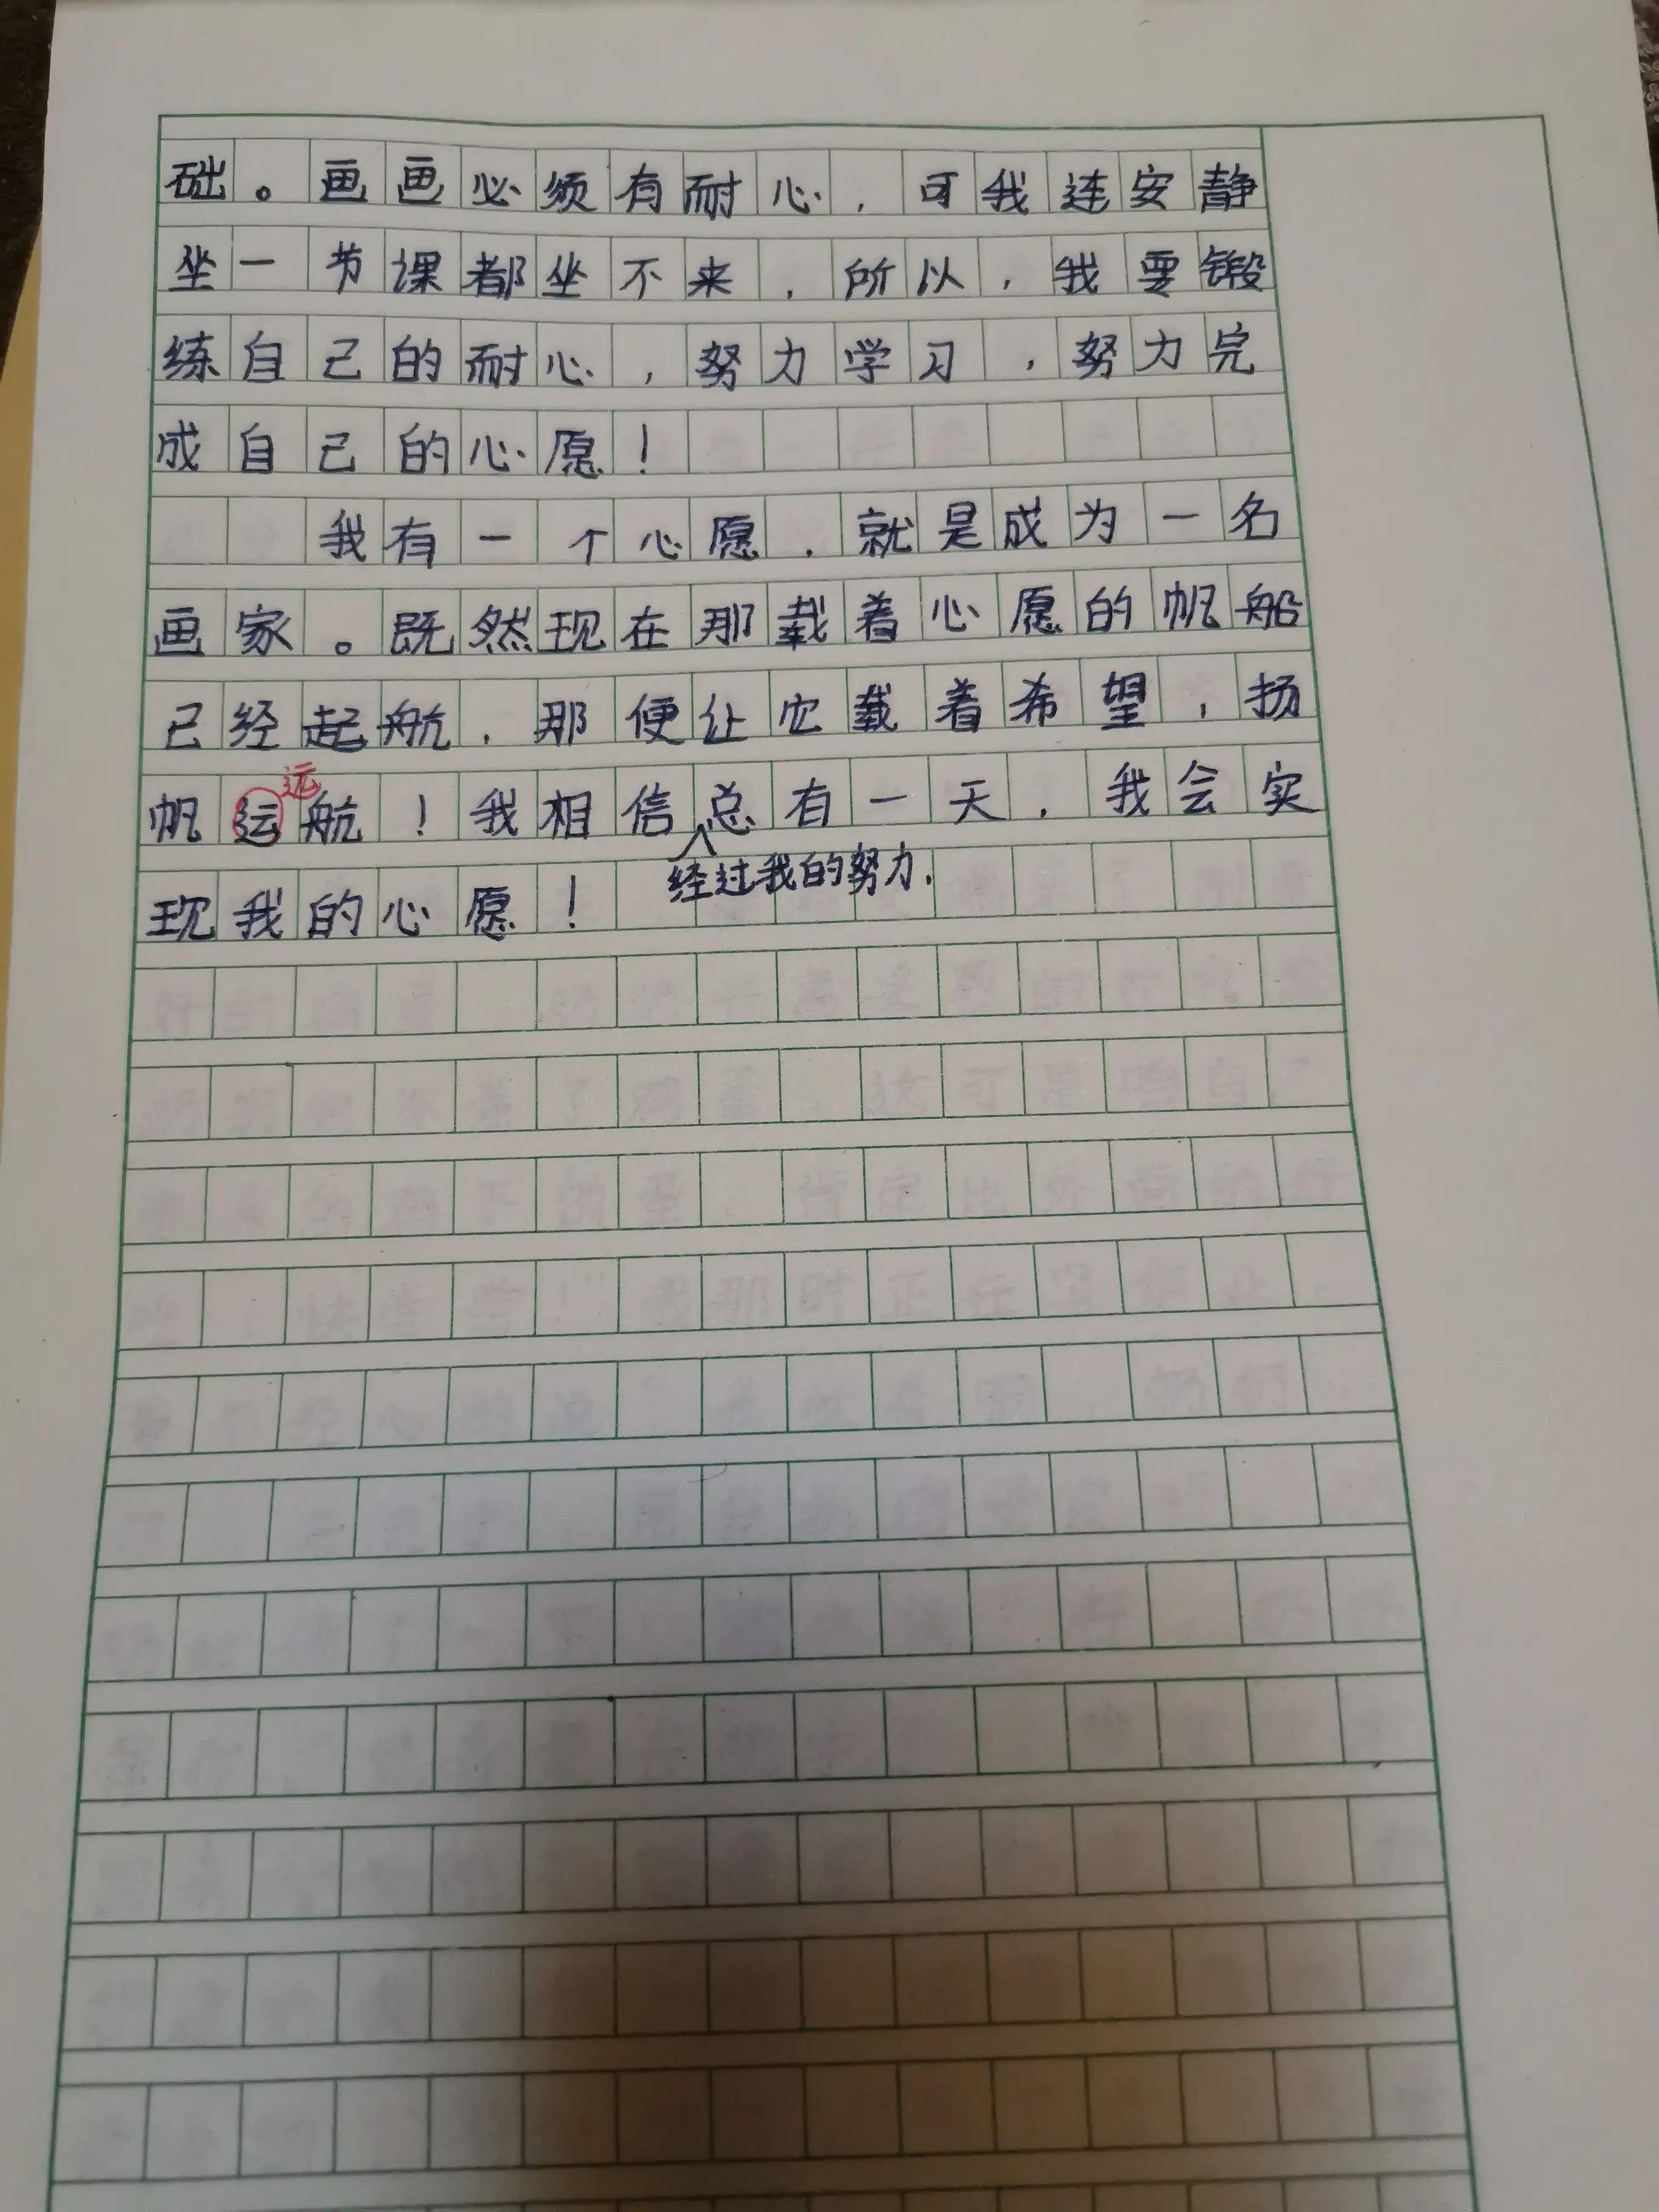 础。画画必须有耐心，可我连安静
坐一节课都坐不来，所以，我要锻
练自己的耐心，努力学习，努力完
成自己的心愿！
我有一个心愿，就是成为一名
画家。既然现在那载着心愿的帆船
已经起航，那便让它载着希望，扬
远
帆运航！我相信总有一天，我会实
经过我的努力，
现我的心愿！